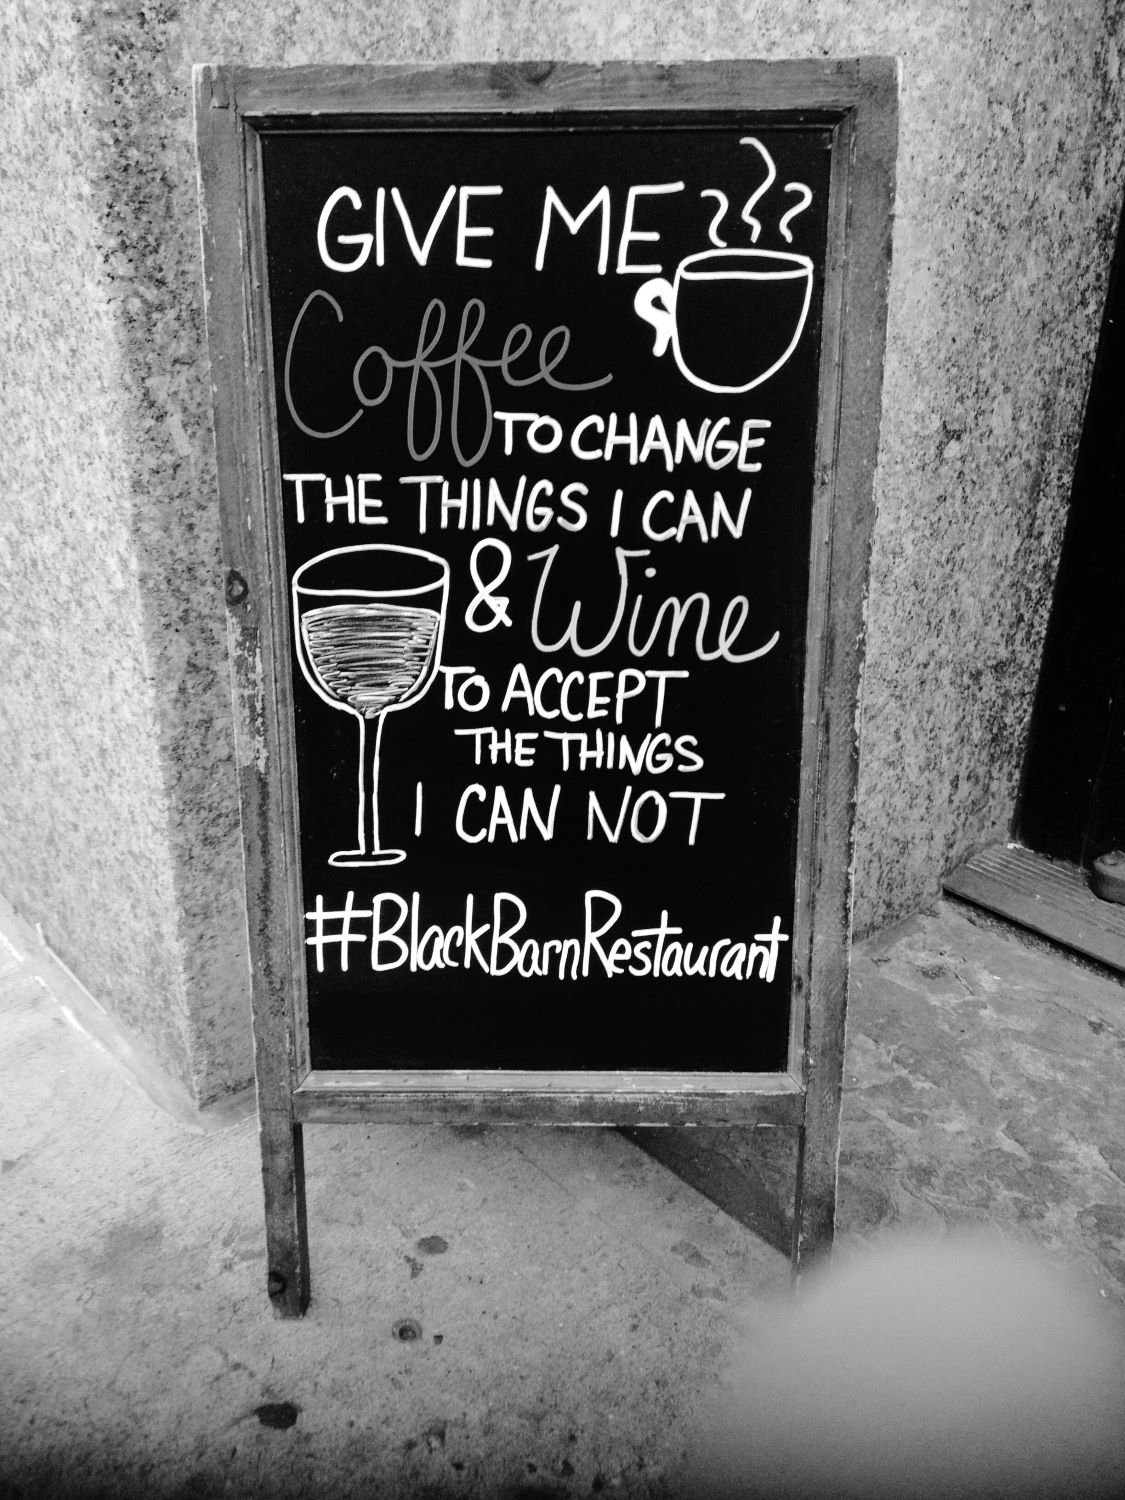 GIVE ME
Coffee
TO CHANGE
THE THINGS I CAN
& Wine
TO ACCEPT
THE THINGS
I CAN NOT
#BlackBarnRestaurant